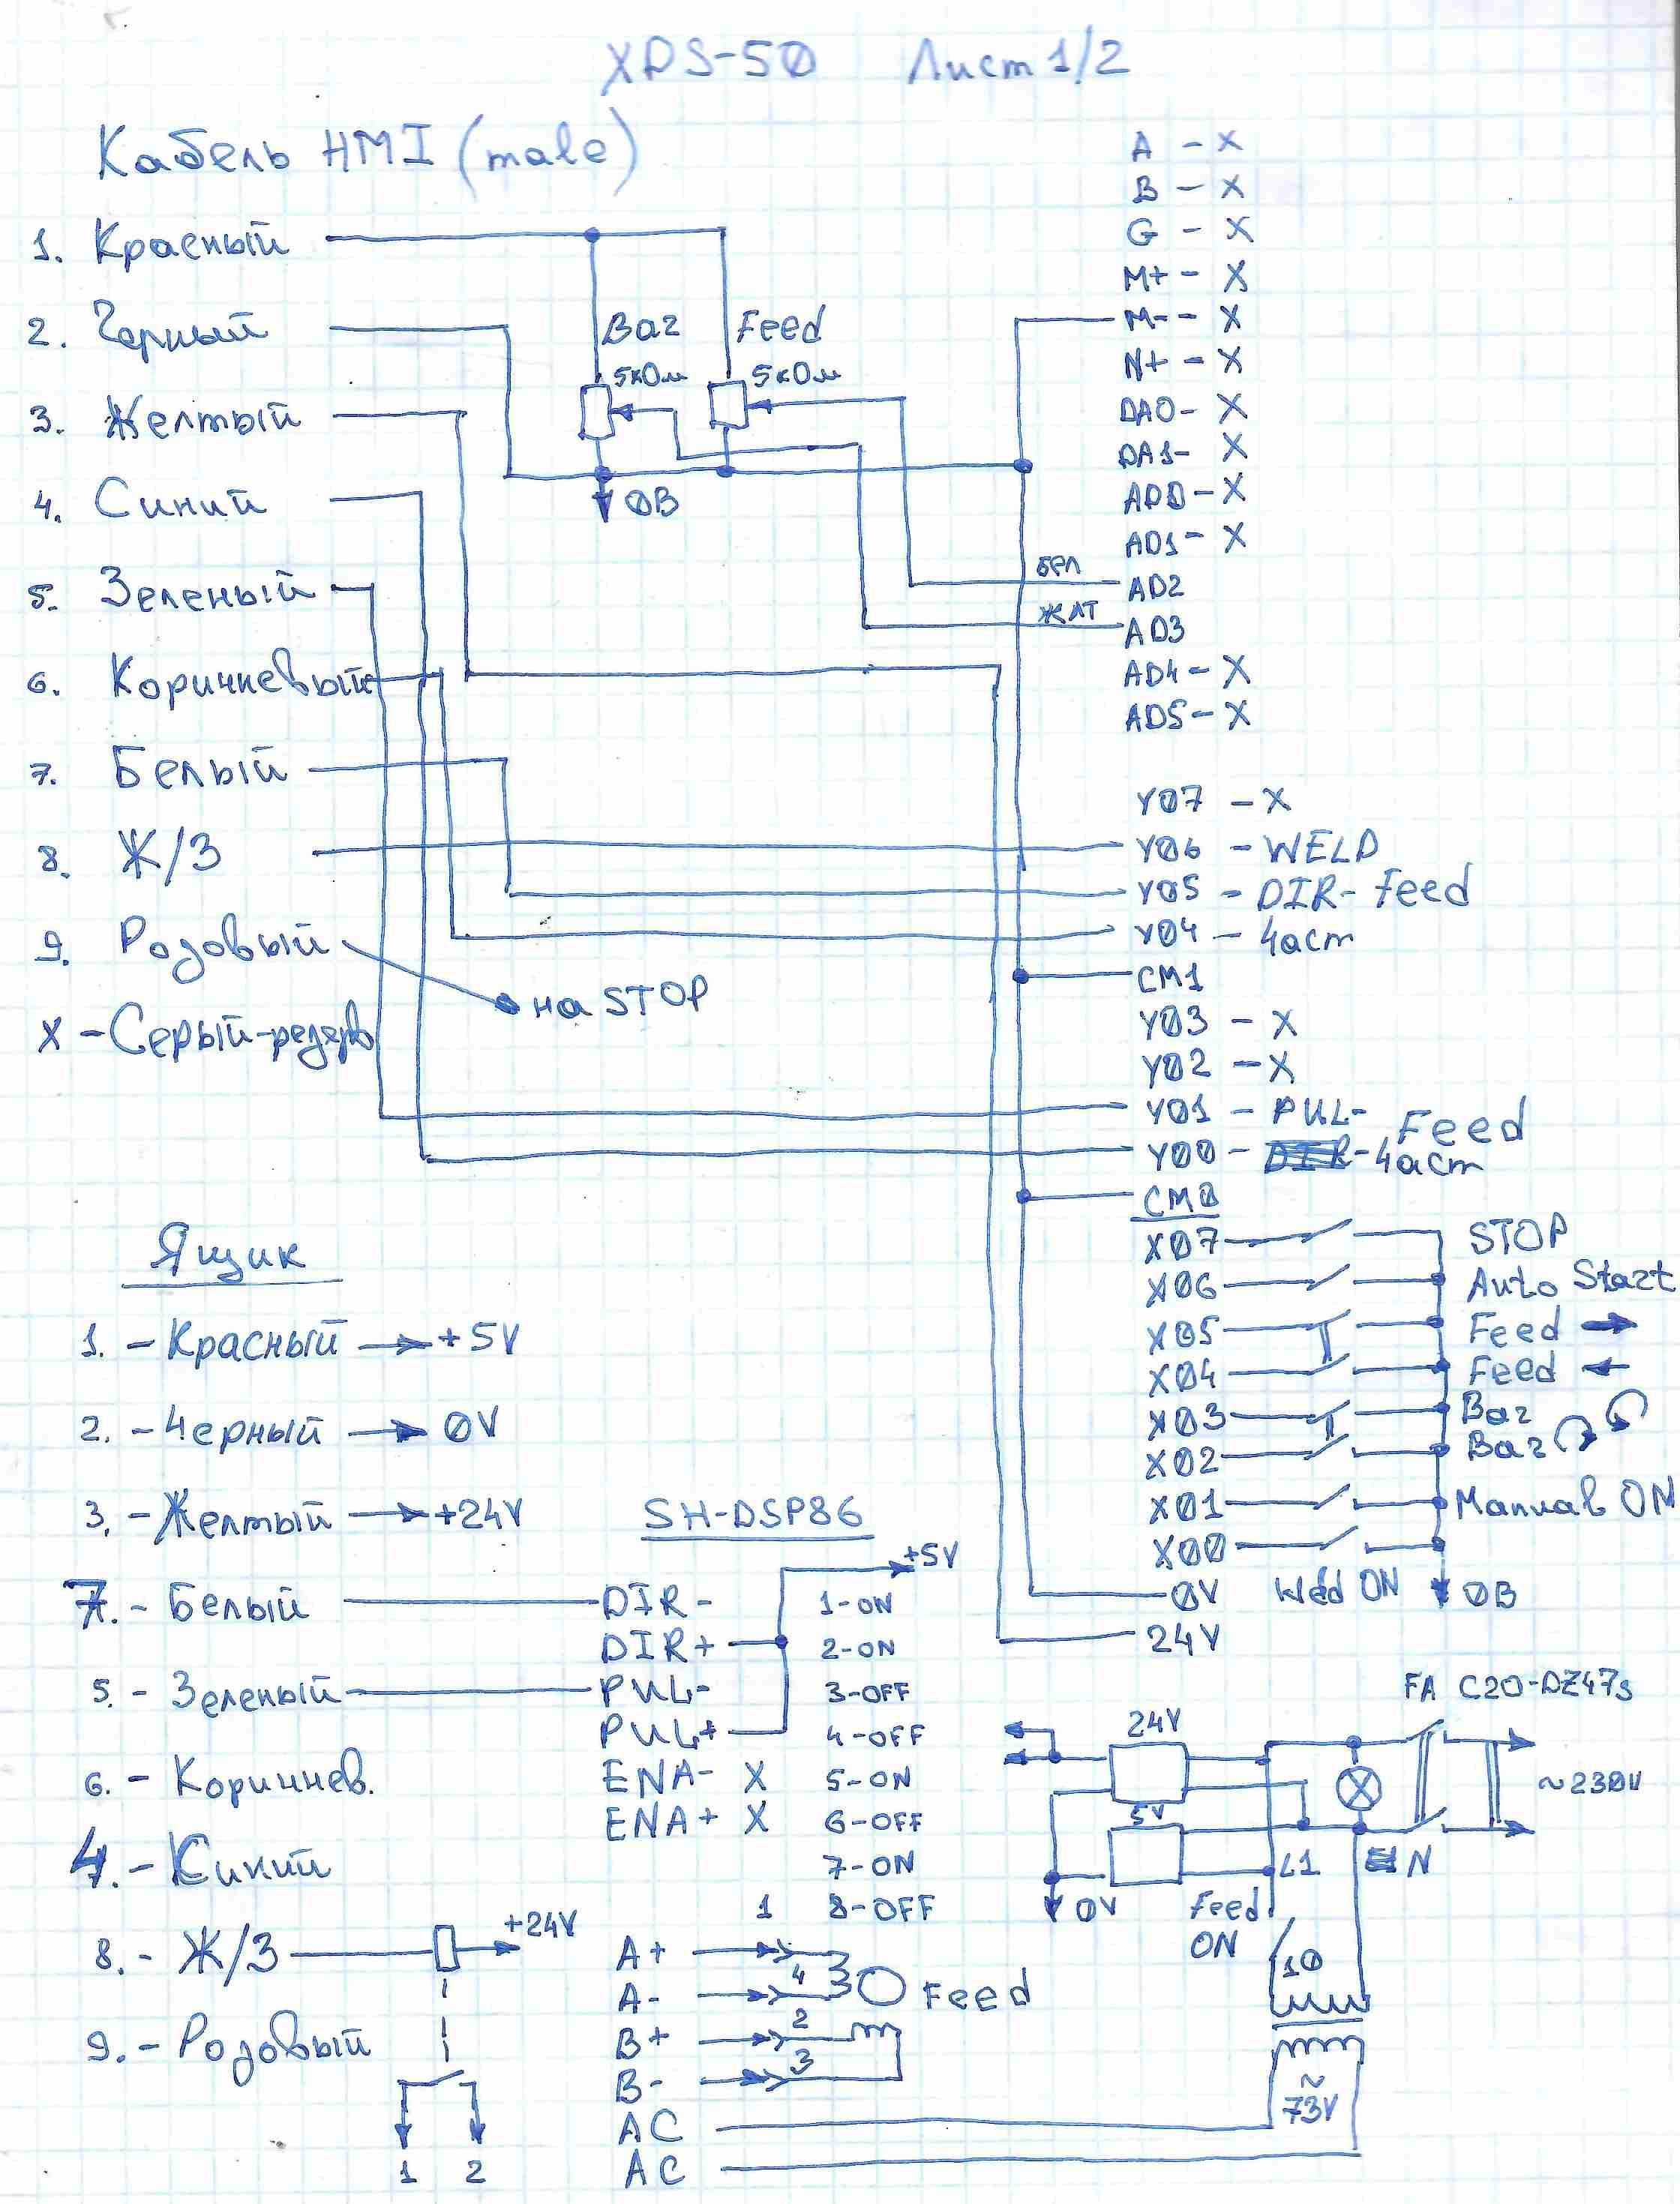 XDS-50 Лист 1/2
Кабель HMI (male)
1. Красный
2. Черный
3. Желтый
4. Синий
5. Зеленый
6. Коричневый
7. Белый
8. Ж/З
9. Розовый
на STOP
X - Серый-резерв
Ваг
5кОм
Feed
5кОм
0В
A - X
B - X
G - X
M+ - X
M- - X
N+ - X
DA0 - X
DA1 - X
AD0 - X
AD1 - X
бел
AD2
жлт
AD3
AD4 - X
AD5 - X
Y07 - X
Y06 - WELD
Y05 - DIR- Feed
Y04 - Част
CM1
Y03 - X
Y02 - X
Y01 - PUL- Feed
Y00 - Част
CM0
X07 STOP
X06 Auto Start
X05 Feed →
X04 Feed ←
X03 Ваг
X02 Ваг
X01 Manual ON
X00
Weld ON
0V
0В
24V
Ящик
1. - Красный → +5V
2. - Черный → 0V
3. - Желтый → +24V
7. - Белый
5. - Зеленый
6. - Коричнев.
4. - Синий
8. - Ж/З
+24V
9. - Розовый
1 2
SH-DSP86
+5V
DIR-
DIR+
PUL-
PUL+
ENA- X
ENA+ X
1-ON
2-ON
3-OFF
4-OFF
5-ON
6-OFF
7-ON
8-OFF
A+ 1
A- 4
B+ 2
B- 3
Feed
AC
AC
FA C20-DZ47s
24V
5V
0V
~230V
L1
N
Feed
ON
10
~
73V